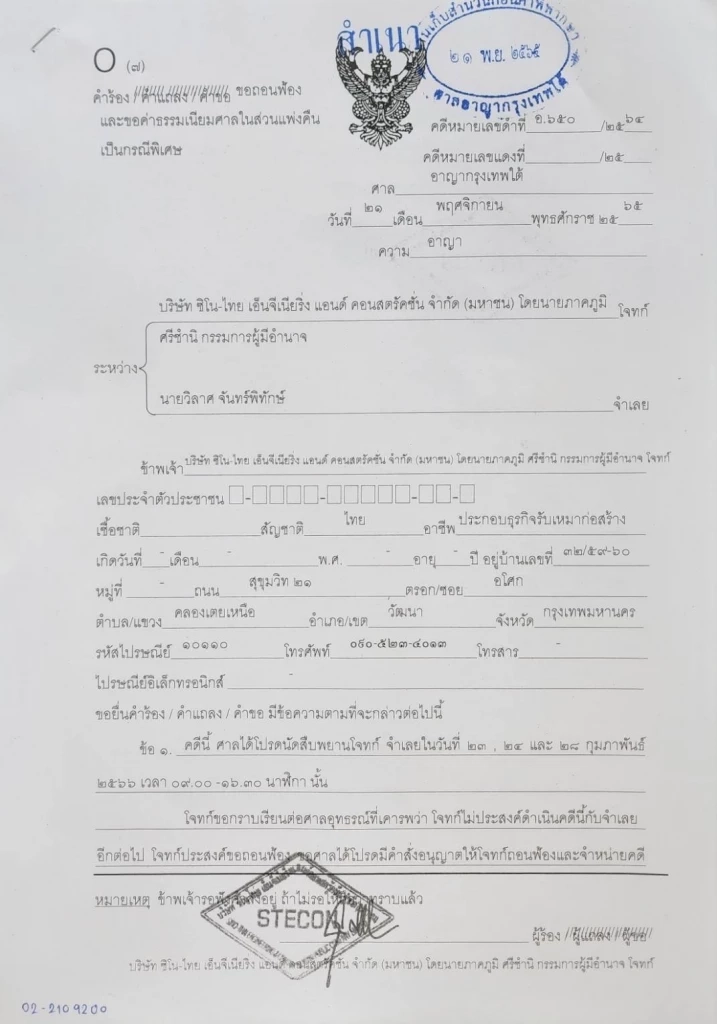 สำเนา
๒๑ พ.ย. ๒๕๖๕
ศาลอาญากรุงเทพใต้
O (๗)
คำร้อง / คำแถลง / คำขอ ขอถอนฟ้อง
และขอค่าธรรมเนียมศาลในส่วนแพ่งคืน
เป็นกรณีพิเศษ
คดีหมายเลขดำที่ อ.๖๕๐ /๒๕๖๔
คดีหมายเลขแดงที่ /๒๕
ศาล อาญากรุงเทพใต้
วันที่ ๒๑ เดือน พฤศจิกายน พุทธศักราช ๒๕๖๕
ความ อาญา
บริษัท ซิโน-ไทย เอ็นจีเนียริ่ง แอนด์ คอนสตรัคชั่น จำกัด (มหาชน) โดยนายภาคภูมิ โจทก์
ศรีชำนิ กรรมการผู้มีอำนาจ
ระหว่าง
นายวิลาศ จันทร์พิทักษ์ จำเลย
ข้าพเจ้า บริษัท ซิโน-ไทย เอ็นจีเนียริ่ง แอนด์ คอนสตรัคชั่น จำกัด (มหาชน) โดยนายภาคภูมิ ศรีชำนิ กรรมการผู้มีอำนาจ โจทก์
เลขประจำตัวประชาชน
เชื้อชาติ สัญชาติ ไทย อาชีพ ประกอบธุรกิจรับเหมาก่อสร้าง
เกิดวันที่ - เดือน - พ.ศ. - อายุ - ปี อยู่บ้านเลขที่ ๓๒/๕๙-๖๐
หมู่ที่ - ถนน สุขุมวิท ๒๑ ตรอก/ซอย อโศก
ตำบล/แขวง คลองเตยเหนือ อำเภอ/เขต วัฒนา จังหวัด กรุงเทพมหานคร
รหัสไปรษณีย์ ๑๐๑๑๐ โทรศัพท์ ๐๙๐-๕๒๓-๔๐๑๓ โทรสาร -
ไปรษณีย์อิเล็กทรอนิกส์ -
ขอยื่นคำร้อง / คำแถลง / คำขอ มีข้อความตามที่จะกล่าวต่อไปนี้
ข้อ ๑. คดีนี้ ศาลได้โปรดนัดสืบพยานโจทก์ จำเลยในวันที่ ๒๓ , ๒๔ และ ๒๘ กุมภาพันธ์
๒๕๖๖ เวลา ๐๙.๐๐ -๑๖.๓๐ นาฬิกา นั้น
โจทก์ขอกราบเรียนต่อศาลอุทธรณ์ที่เคารพว่า โจทก์ไม่ประสงค์ดำเนินคดีนี้กับจำเลย
อีกต่อไป โจทก์ประสงค์ขอถอนฟ้อง ขอศาลได้โปรดมีคำสั่งอนุญาตให้โจทก์ถอนฟ้องและจำหน่ายคดี
หมายเหตุ ข้าพเจ้ารอฟังคำสั่งอยู่ ถ้าไม่รอให้ถือว่าทราบแล้ว
STECON
ผู้ร้อง / ผู้แถลง / ผู้ขอ
บริษัท ซิโน-ไทย เอ็นจีเนียริ่ง แอนด์ คอนสตรัคชั่น จำกัด (มหาชน) โดยนายภาคภูมิ ศรีชำนิ กรรมการผู้มีอำนาจ โจทก์
02-210 9200